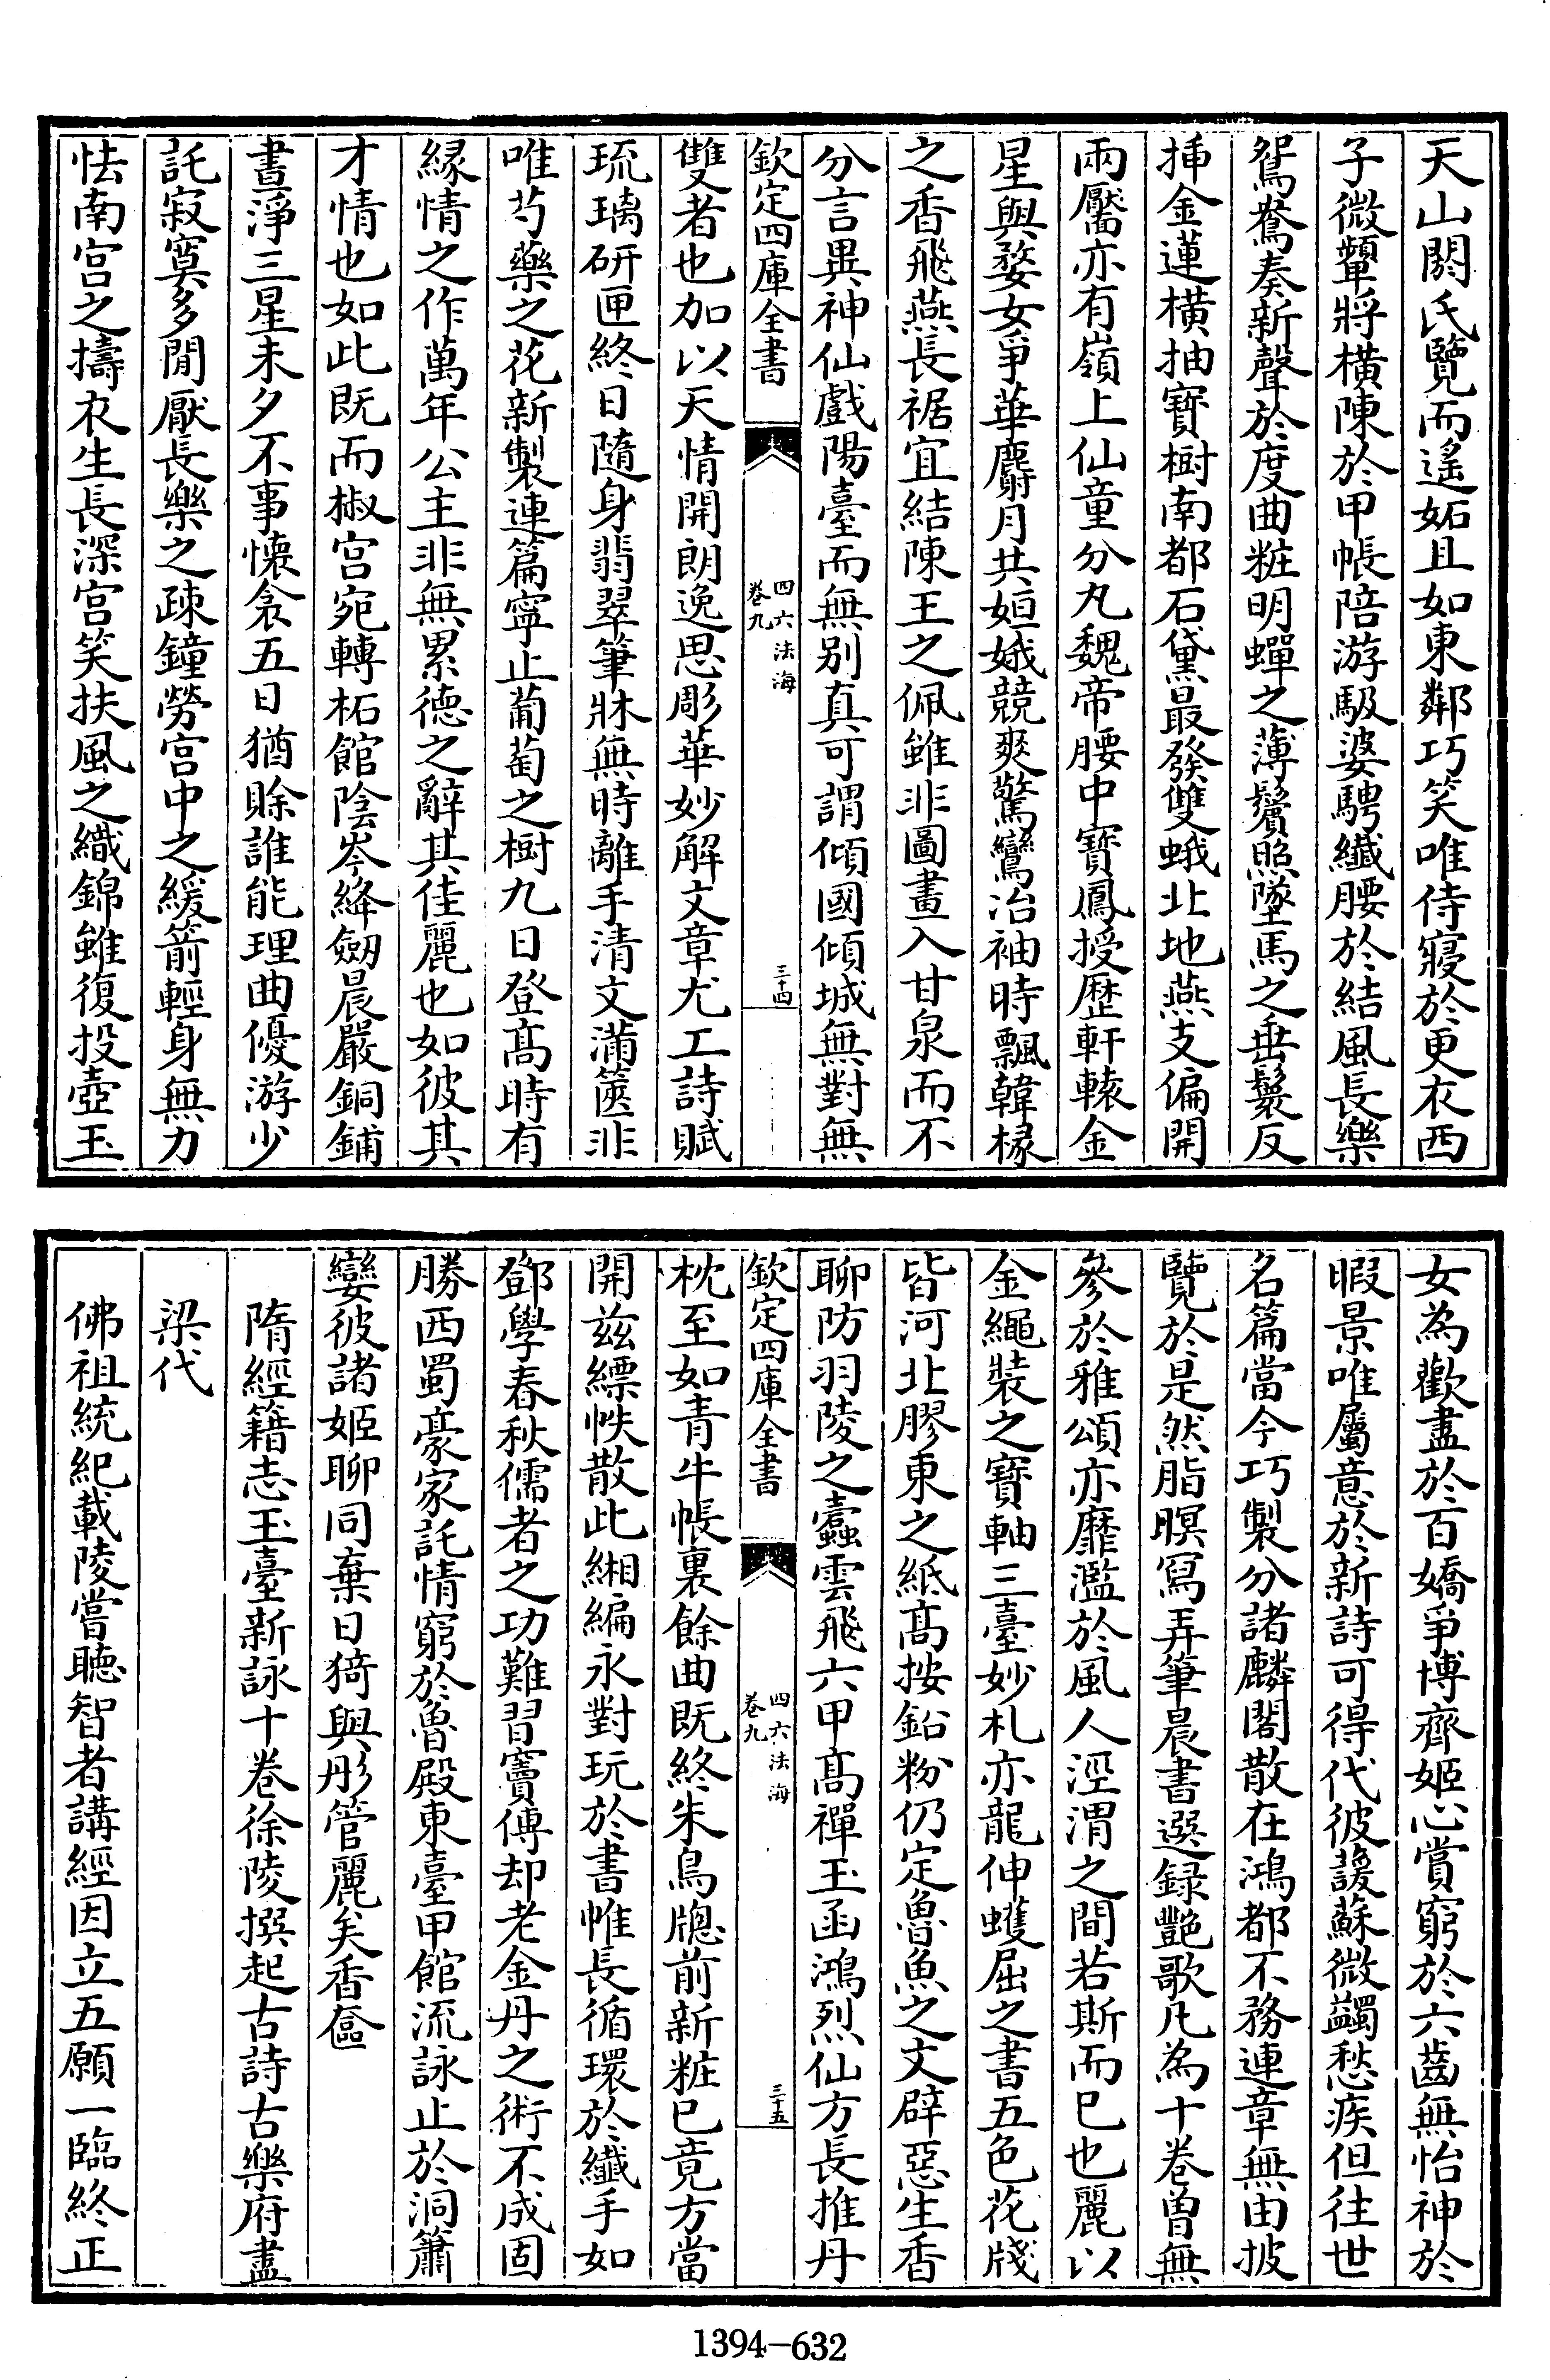 天山閼氏覽而遙妬且如東鄰巧笑唯侍寢於更衣西
子微顰將橫陳於甲帳陪游馺娑騁纖腰於結風長樂
鴛鴦奏新聲於度曲粧明蟬之薄鬢照墜馬之垂鬟反
挿金蓮橫抽寶樹南都石黛最發雙蛾北地燕支偏開
兩靨亦有嶺上仙童分丸魏帝腰中寶鳳授歷軒轅金
星與婺女爭華麝月共姮娥競爽驚鸞冶袖時飄韓椽
之香飛燕長裾宜結陳王之佩雖非圖畫入甘泉而不
分言異神仙戲陽臺而無別真可謂傾國傾城無對無
欽定四庫全書
四六法海
卷九
三十四
雙者也加以天情開朗逸思彫華妙解文章尤工詩賦
琉璃硏匣終日隨身翡翠筆牀無時離手清文滿篋非
唯芍藥之花新製連篇寜止葡萄之樹九日登髙時有
緣情之作萬年公主非無累德之辭其佳麗也如彼其
才情也如此既而椒宮宛轉柘館陰岑絳劒晨嚴銅鋪
晝淨三星未夕不事懷衾五日猶賒誰能理曲優游少
託寂寞多閒厭長樂之疎鐘勞宮中之緩箭輕身無力
怯南宮之擣衣生長深宮笑扶風之織錦雖復投壺玉
女為歡盡於百嬌爭博齊姬心賞窮於六齒無怡神於
暇景唯屬意於新詩可得代彼諼蘇微蠲愁疾但往世
名篇當今巧製分諸麟閣散在鴻都不務連章無由披
覽於是然脂暝寫弄筆晨書選録艷歌凡為十卷曾無
參於雅頌亦靡濫於風人涇渭之間若斯而已也麗以
金繩裝之寶軸三臺妙札亦龍伸蠖屈之書五色花牋
皆河北膠東之紙髙按鉛粉仍定魯魚之文辟惡生香
聊防羽陵之蠹雲飛六甲髙禪玉函鴻烈仙方長推丹
欽定四庫全書
四六法海
卷九
三十五
枕至如青牛帳裏餘曲既終朱鳥牕前新粧已竟方當
開兹縹帙散此緗編永對玩於書帷長循環於纖手如
鄧學春秋儒者之功難習竇傳却老金丹之術不成固
勝西蜀豪家託情窮於魯殿東臺甲館流詠止於洞簫
孌彼諸姬聊同棄日猗與彤管麗矣香奩
隋經籍志玉臺新詠十卷徐陵撰起古詩古樂府盡
梁代
佛祖統紀載陵嘗聽智者講經因立五願一臨終正
1394-632